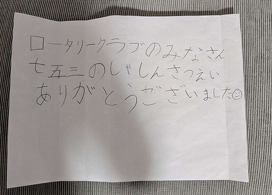 ロータリークラブのみなさん
七五三のしゃしんさつえい
ありがとうございました☺